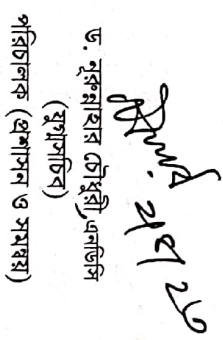 ড. নূরুন্নাহার চৌধুরী, এনডিসি
(যুগ্মসচিব)
পরিচালক (প্রশাসন ও সমন্বয়)